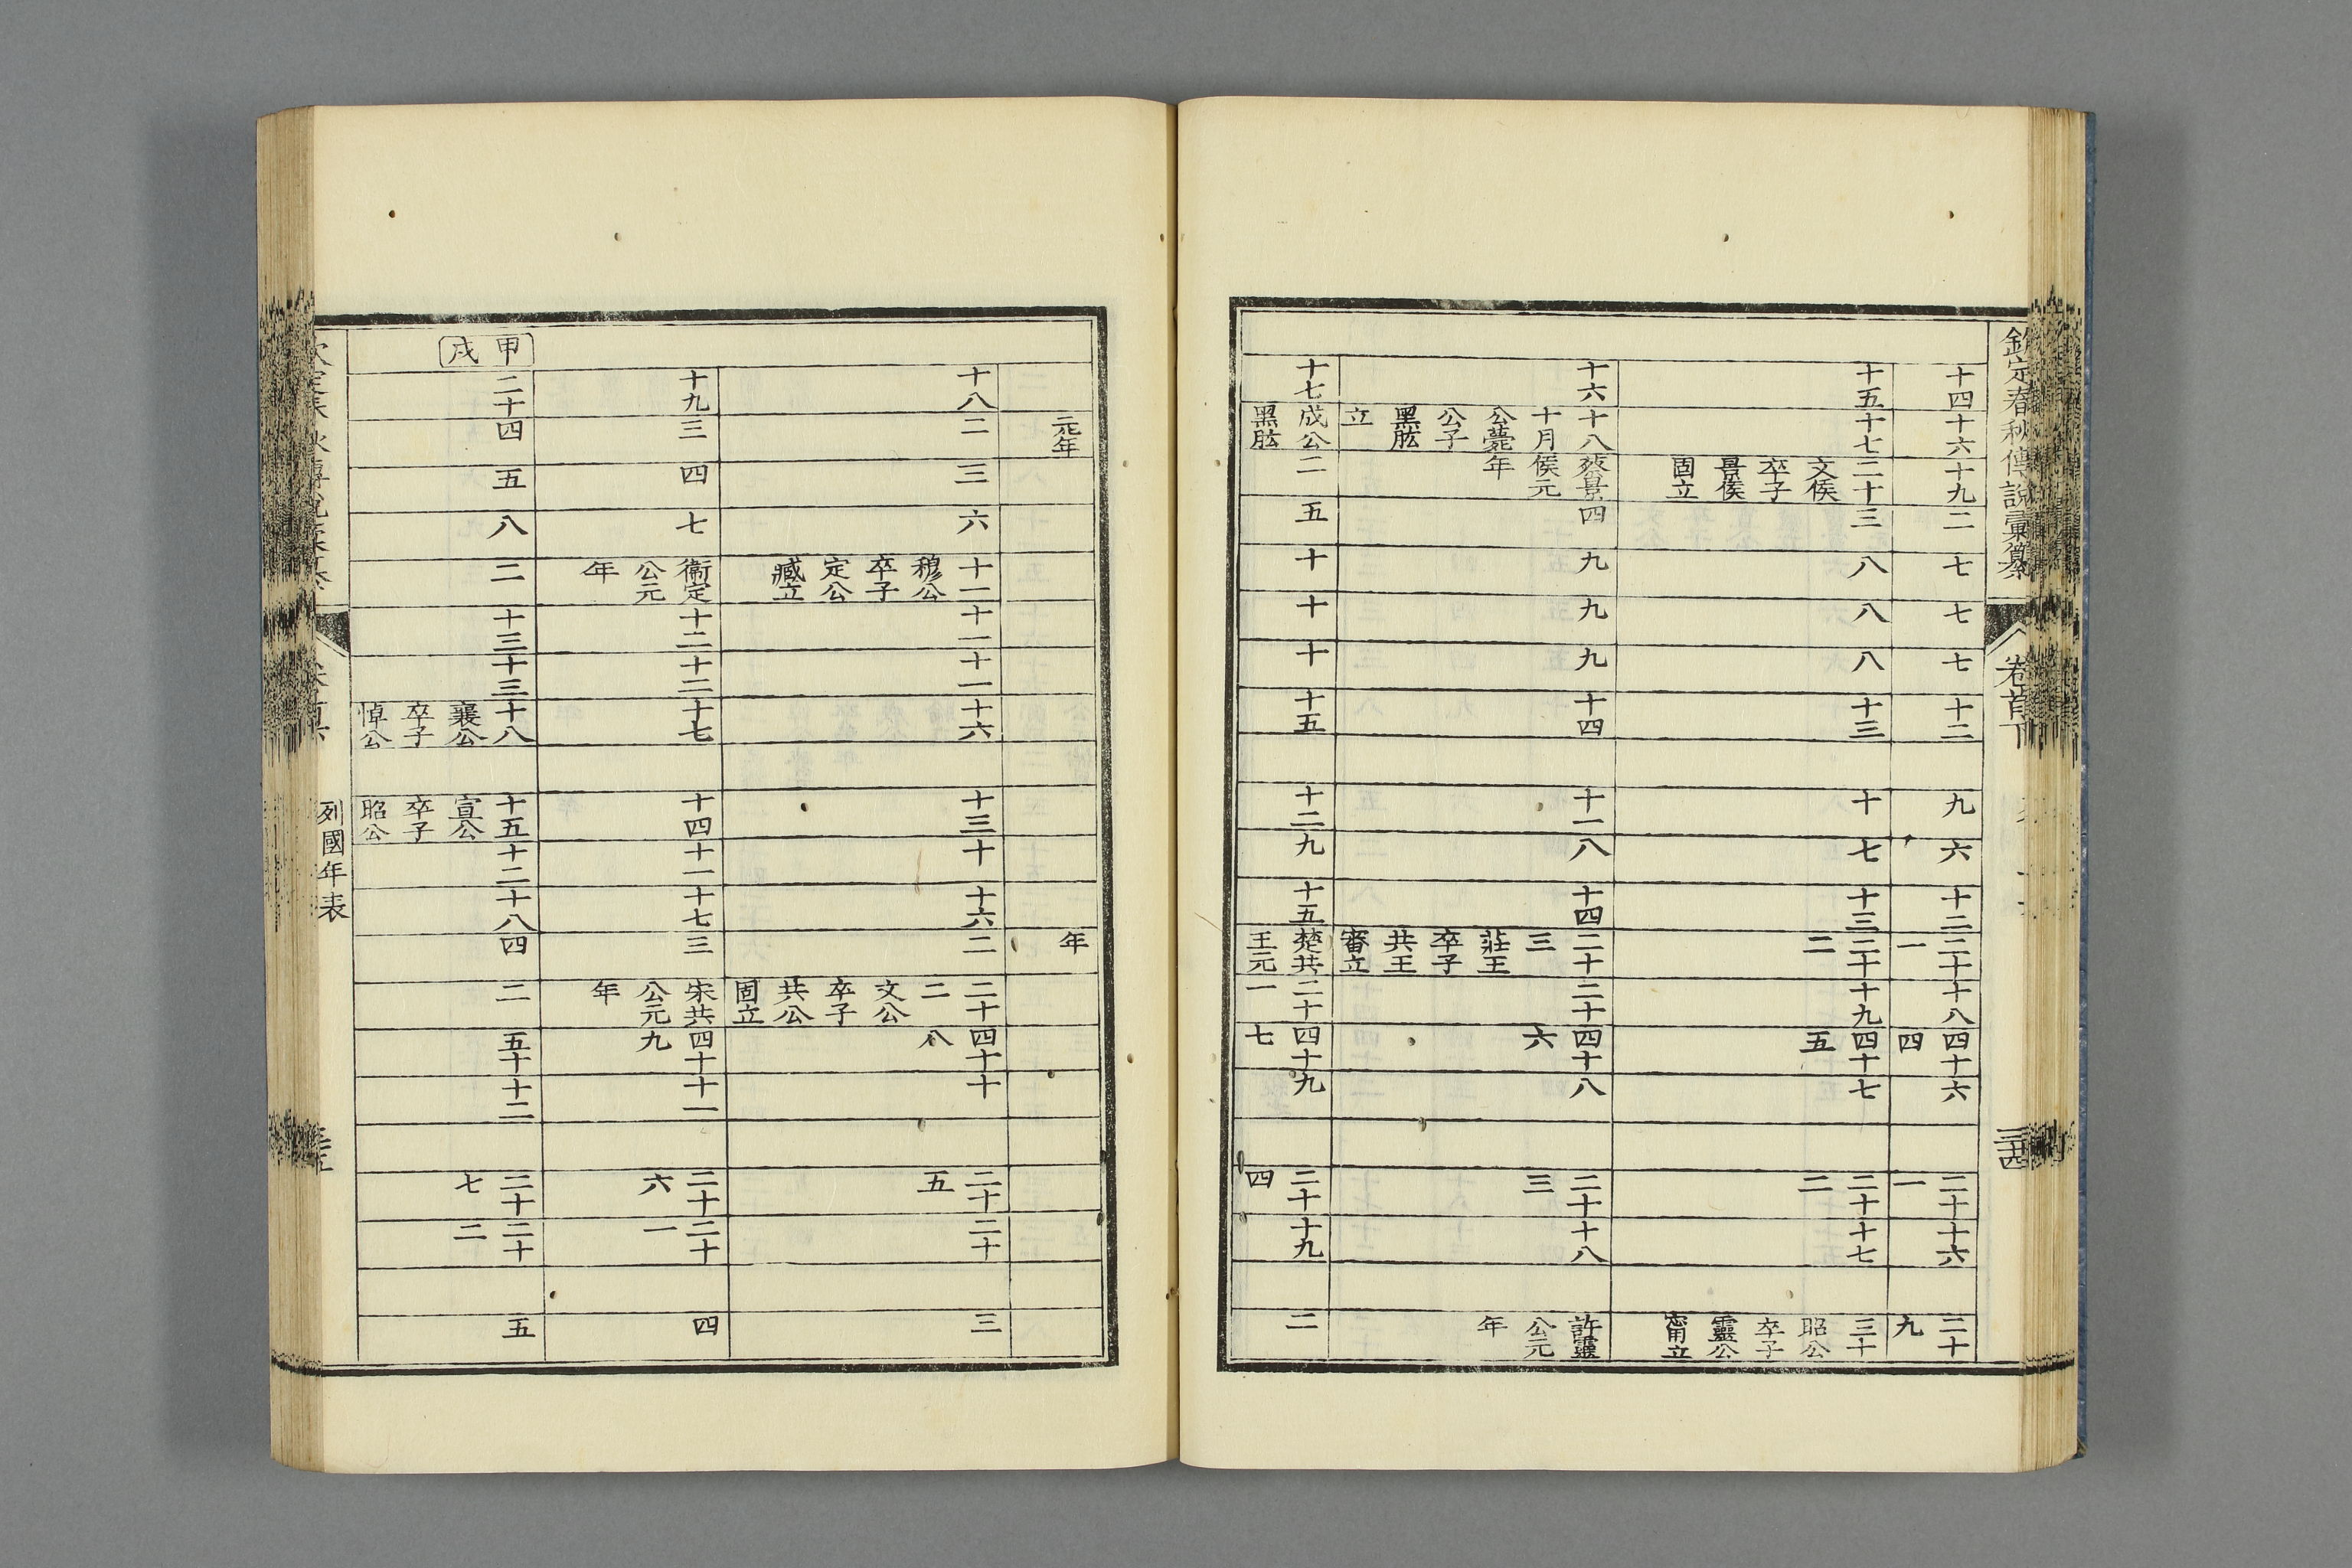 欽定春秋傳說彙纂
卷首下
十四
十六
十九
二
七
七
七
十二
九
六
十二
二十一
十八
四十四
六
二十一
十六
二十九
十五
十七
二十
文侯
卒子
景侯
固立
三
八
八
八
十三
十
七
十三
二十二
十九
四十五
七
二十二
十七
三十
昭公
卒子
靈公
甯立
十六
十八
十月
公薨
公子
黑肱
立
蔡景
侯元
年
四
九
九
九
十四
十一
八
十四
二十三
莊王
卒子
共王
審立
二十
四十六
八
二十三
十八
許靈
公元
年
十七
成公
黑肱
二
五
十
十
十
十五
十二
九
十五
楚共
王元
二十一
四十七
九
二十四
十九
二
元年
年
十八
二
三
六
十一
穆公
卒子
定公
臧立
十一
十一
十六
十三
十
十六
二
二十二
文公
卒子
共公
固立
四十八
十
二十五
二十
三
十九
三
四
七
衞定
公元
年
十二
十二
十七
十四
十一
十七
三
宋共
公元
年
四十九
十一
二十六
二十一
四
甲戌
二十
四
五
八
二
十三
十三
十八
襄公
卒子
悼公
十五
宣公
卒子
昭公
十二
十八
四
二
五十
十二
二十七
二十二
五
列國年表